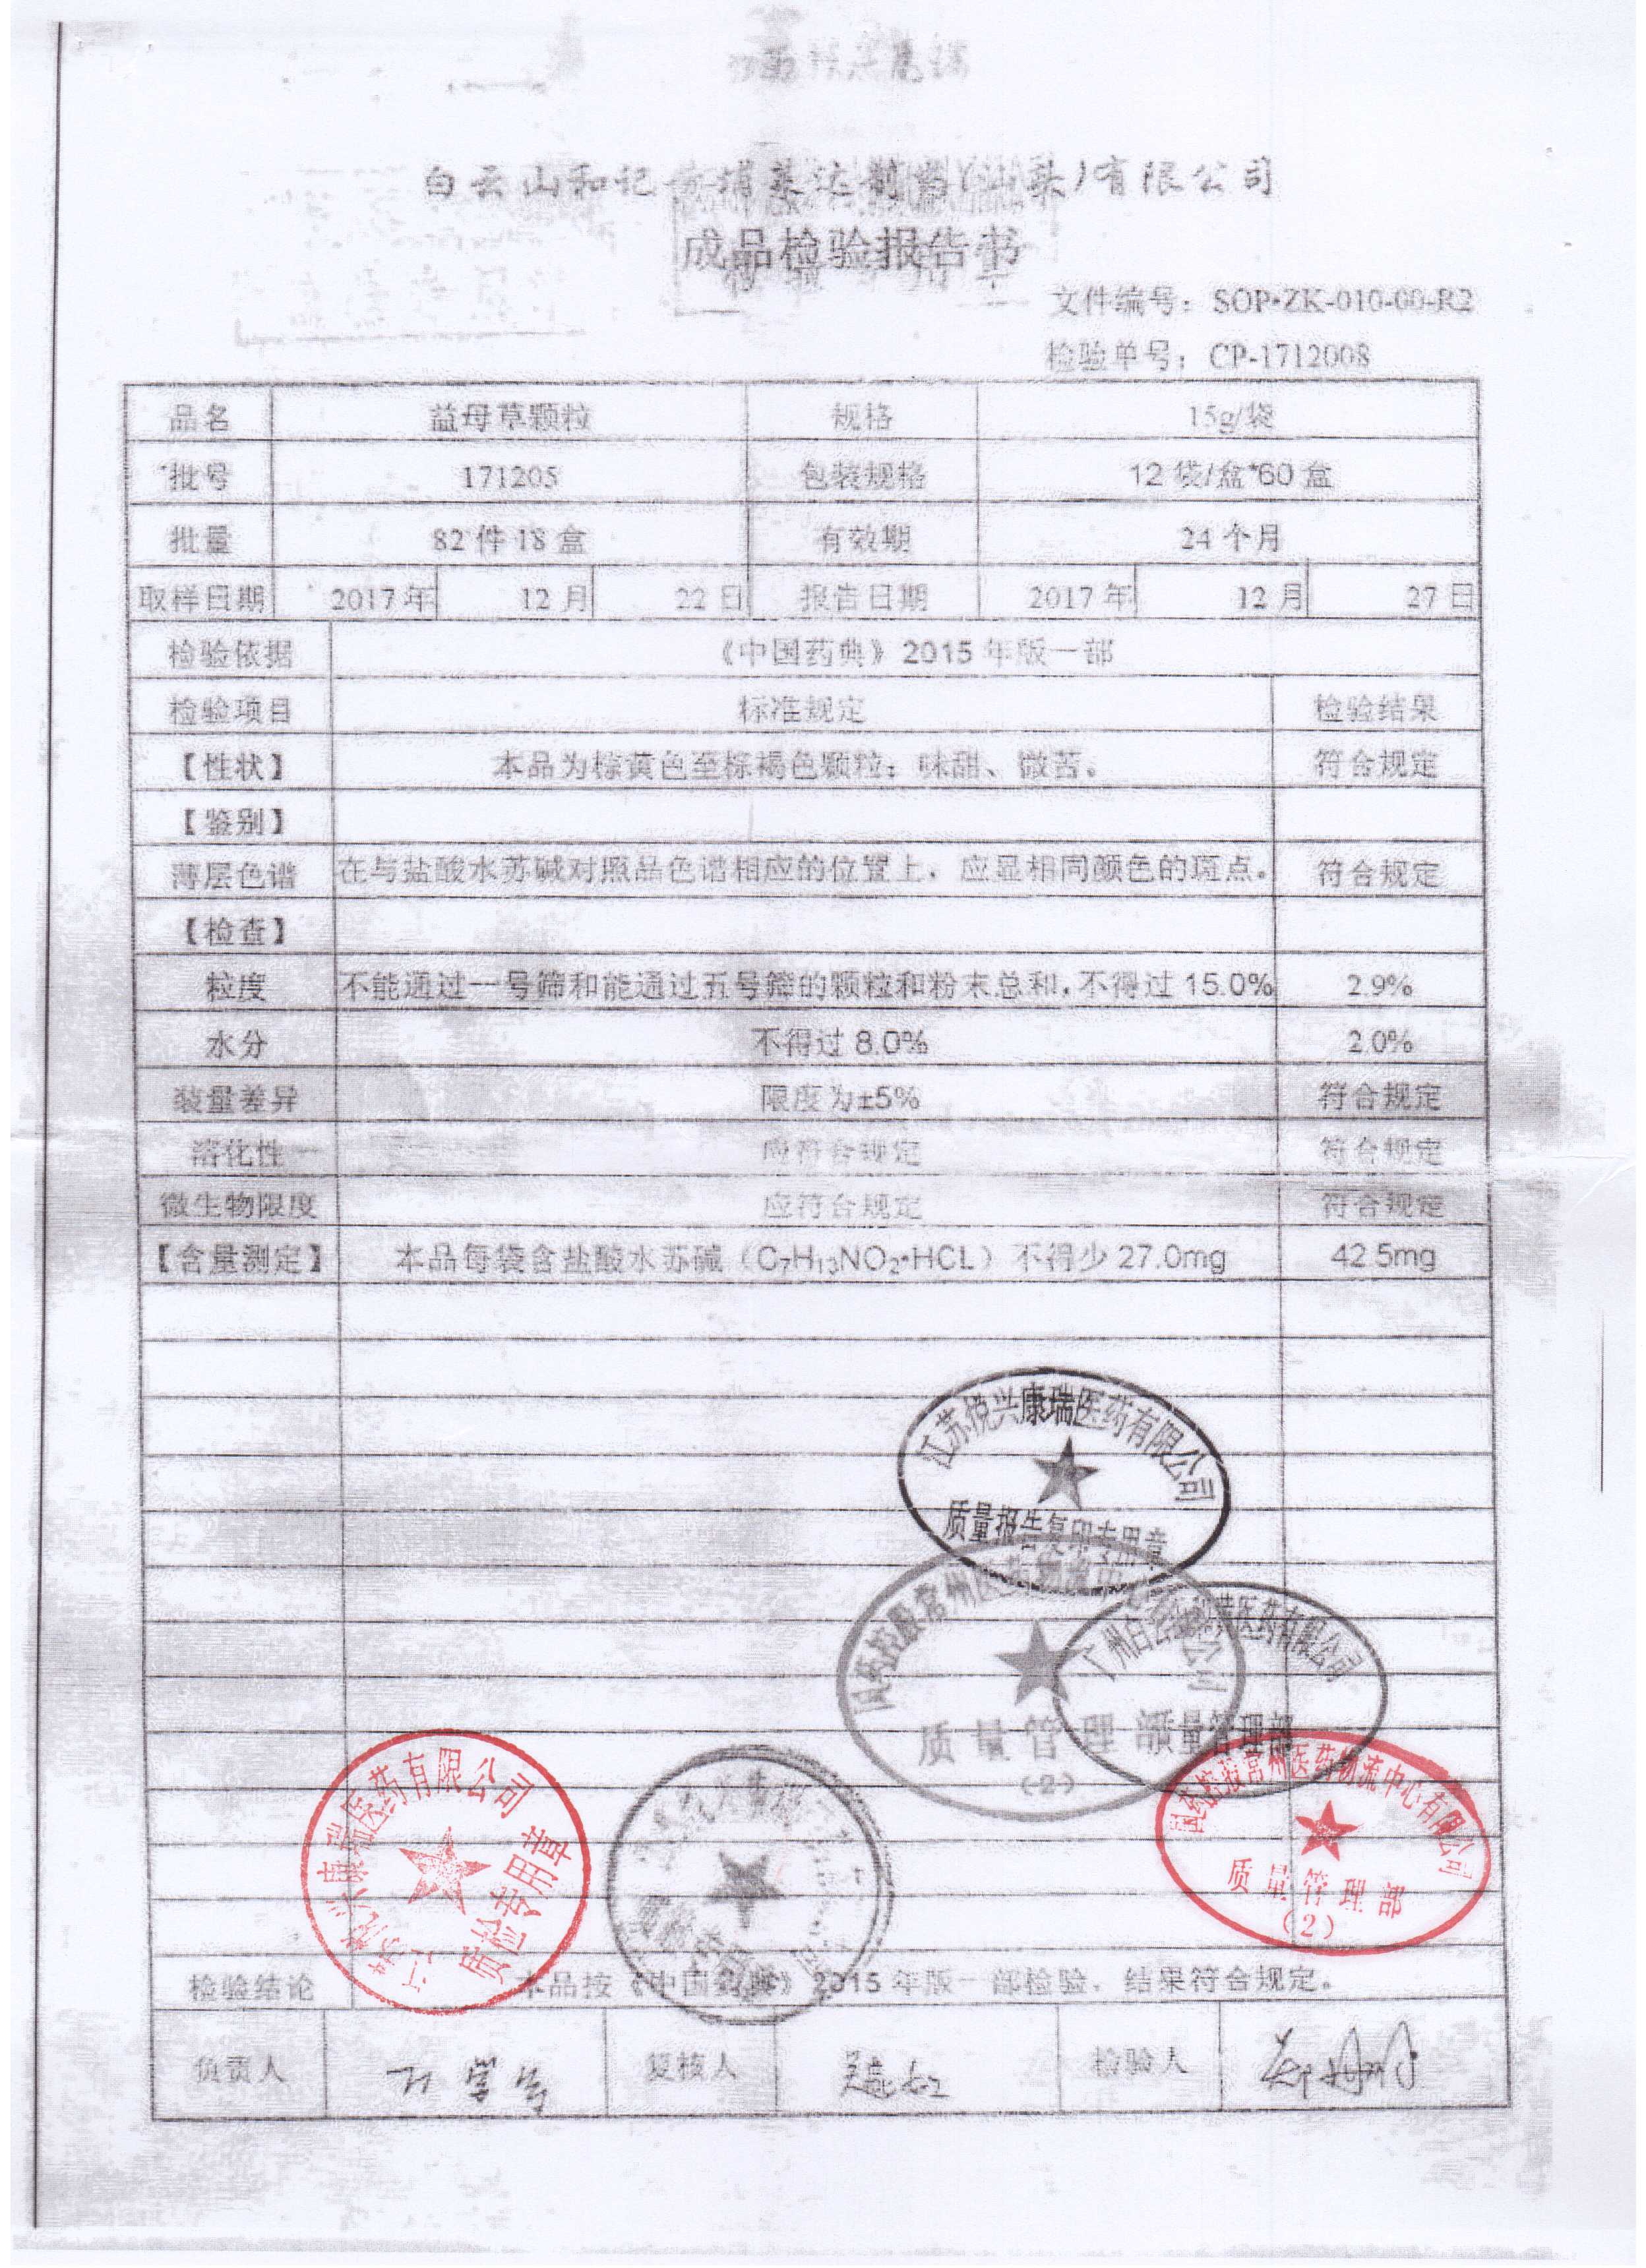 白云山和记黄埔莱达制药(汕头)有限公司
成品检验报告书
文件编号：SOP·ZK-010-00-R2
检验单号：CP-1712008
品名 益母草颗粒 规格 15g/袋
批号 171205 包装规格 12 袋/盒*60 盒
批量 82 件 18 盒 有效期 24 个月
取样日期 2017 年 12 月 22 日 报告日期 2017 年 12 月 27 日
检验依据 《中国药典》2015 年版一部
检验项目 标准规定 检验结果
【性状】 本品为棕黄色至棕褐色颗粒；味甜、微苦。 符合规定
【鉴别】
薄层色谱 在与盐酸水苏碱对照品色谱相应的位置上，应显相同颜色的斑点。 符合规定
【检查】
粒度 不能通过一号筛和能通过五号筛的颗粒和粉末总和，不得过 15.0% 2.9%
水分 不得过 8.0% 2.0%
装量差异 限度为±5% 符合规定
溶化性 应符合规定 符合规定
微生物限度 应符合规定 符合规定
【含量测定】 本品每袋含盐酸水苏碱（C₇H₁₃NO₂•HCL）不得少 27.0mg 42.5mg
江苏悦兴康瑞医药有限公司
质量报告复印专用章
国药控股常州医药物流中心有限公司
质量管理部
(2)
广州白云山 医药有限公司
质量管理部
江苏悦兴康瑞医药有限公司
质检专用章
国药控股常州医药物流中心有限公司
质量管理部
(2)
检验结论 本品按《中国药典》2015 年版一部检验，结果符合规定。
负责人 复核人 检验人